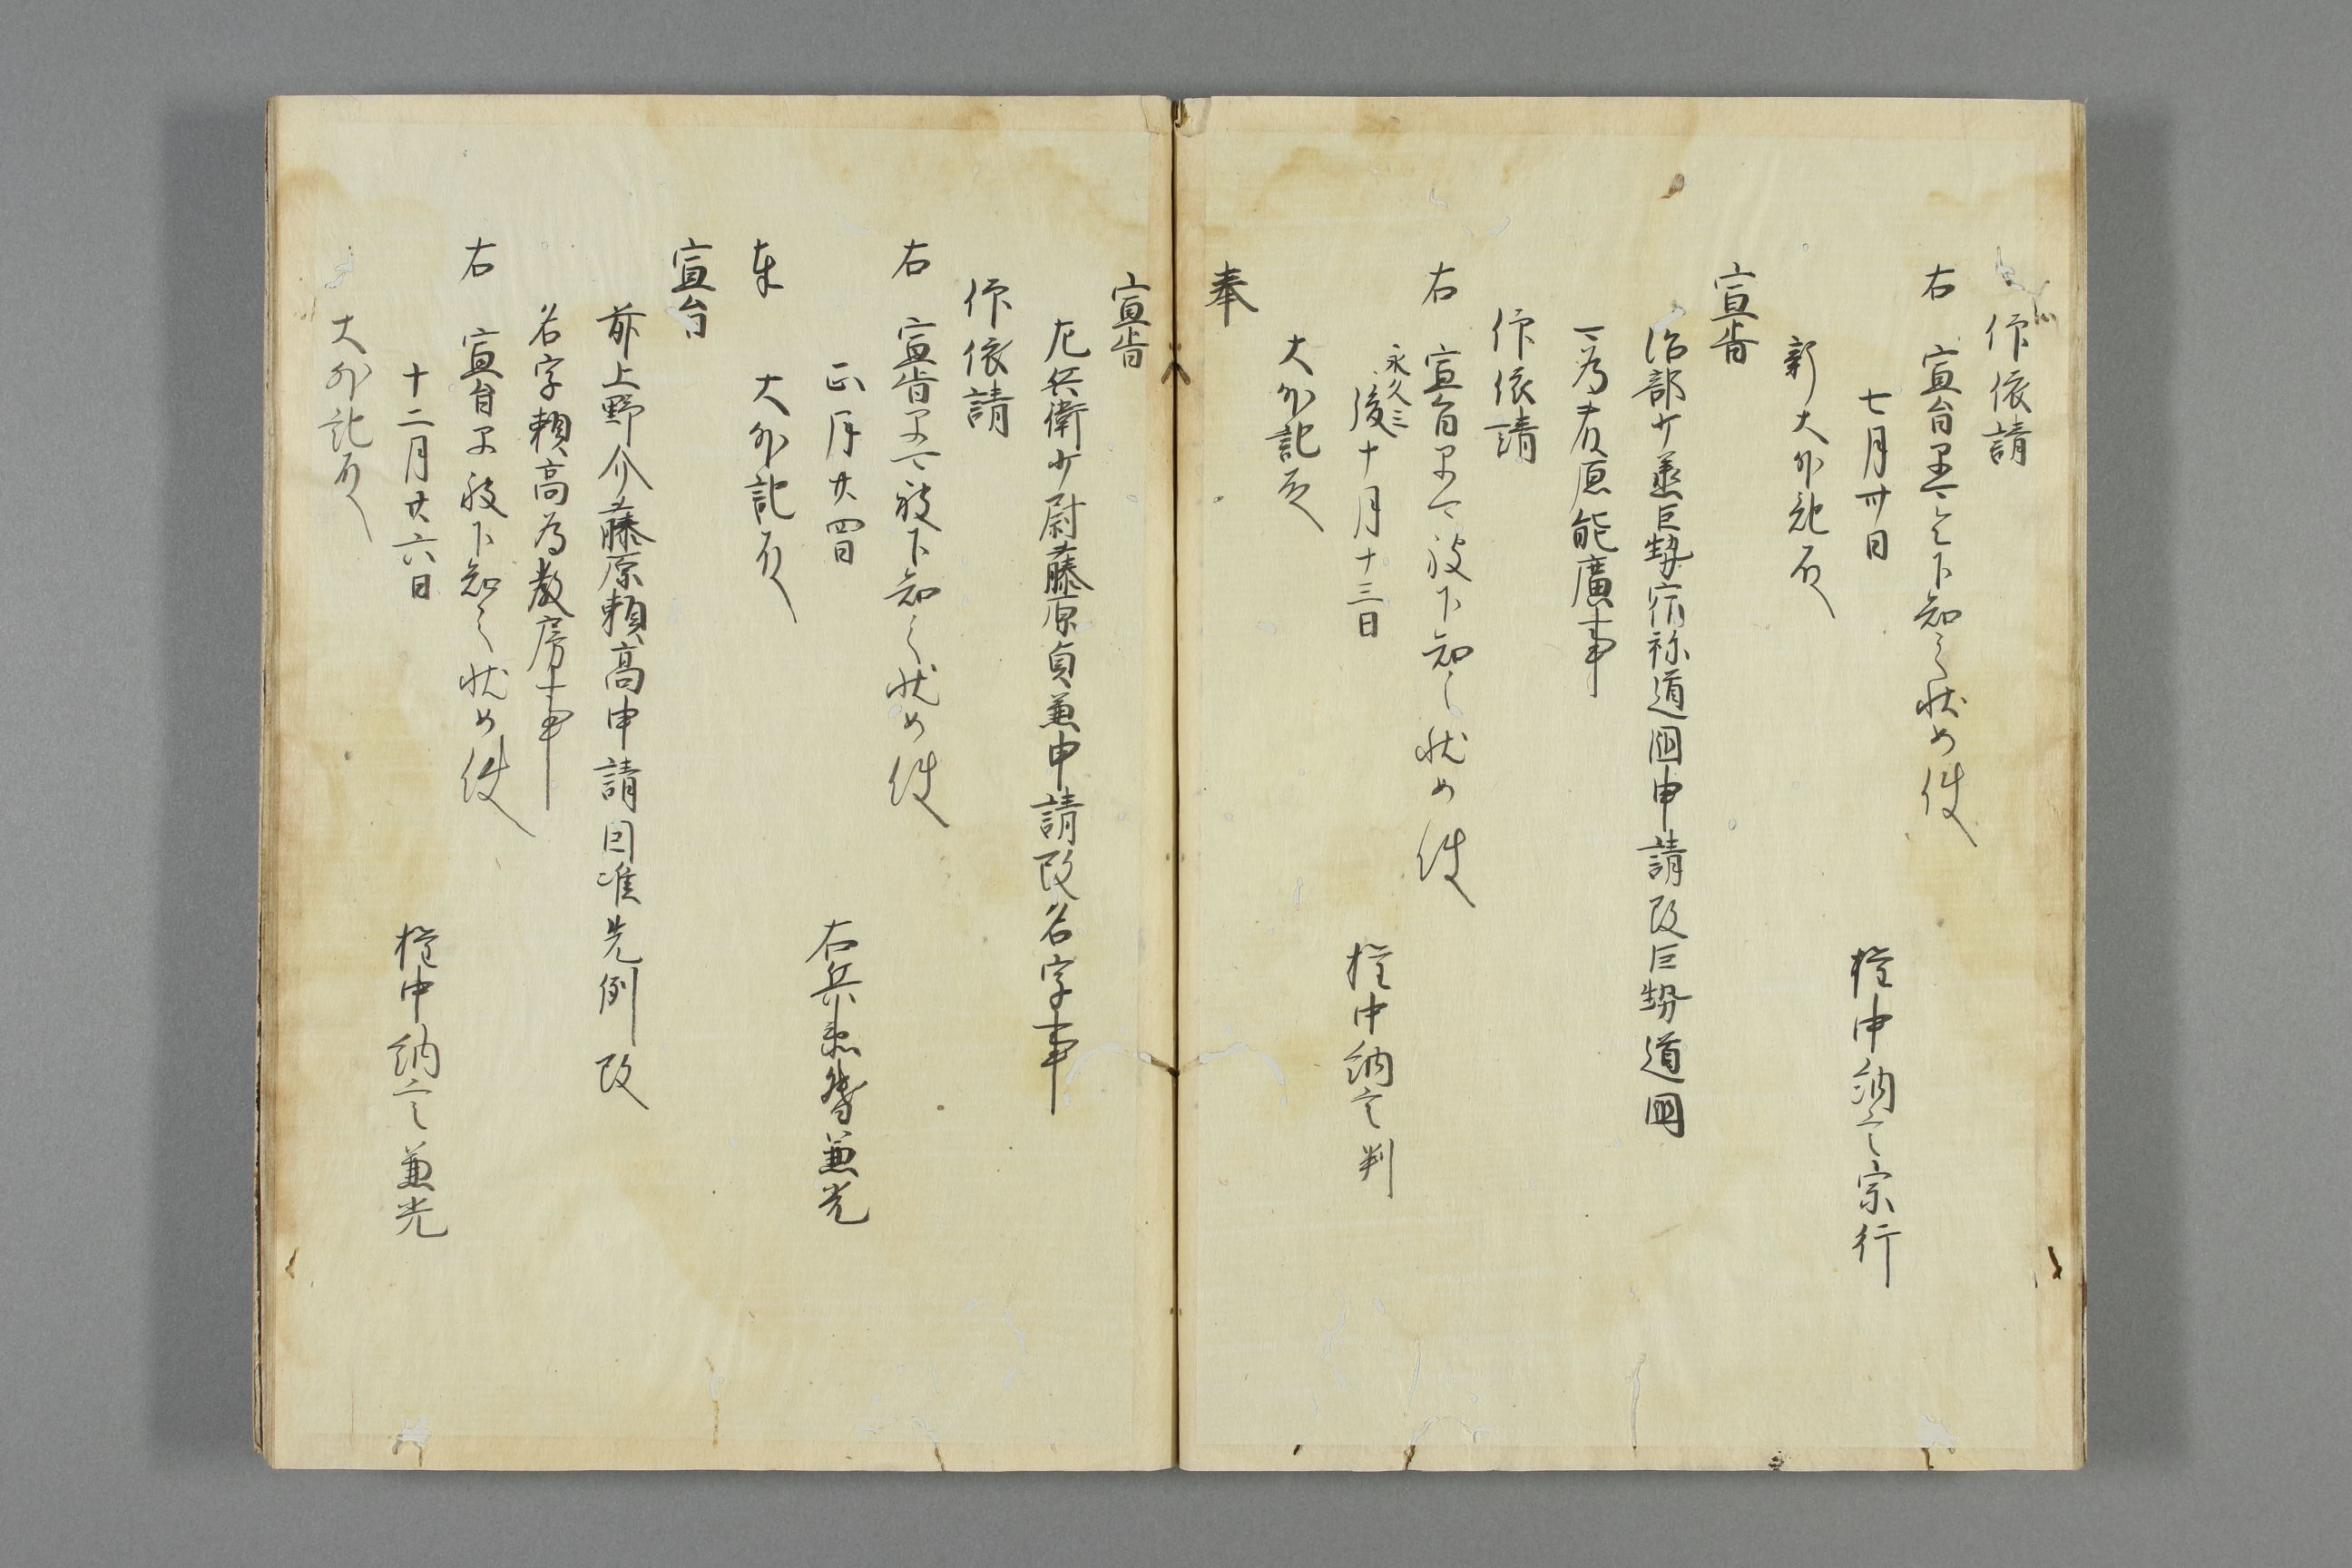 仰依請
右 宣旨早可令下知之状如件
七月卅日 権中納言宗行
新大外記殿
宣旨
治部少丞巨勢宿祢道国申請改巨勢道国
為藤原能廣事
仰依請
右 宣旨早可被下知之状如件
永久三
後十月十三日 権中納言判
大外記殿
奉
宣旨
左兵衛少尉藤原貞兼申請改名字事
仰依請
右 宣旨早可被下知之状如件
正月廿四日 右兵衛督兼光
奉 大外記殿
宣旨
前上野介藤原頼高申請因准先例改
名字頼高為教房事
右 宣旨早可被下知之状如件
十二月廿六日 権中納言兼光
大外記殿